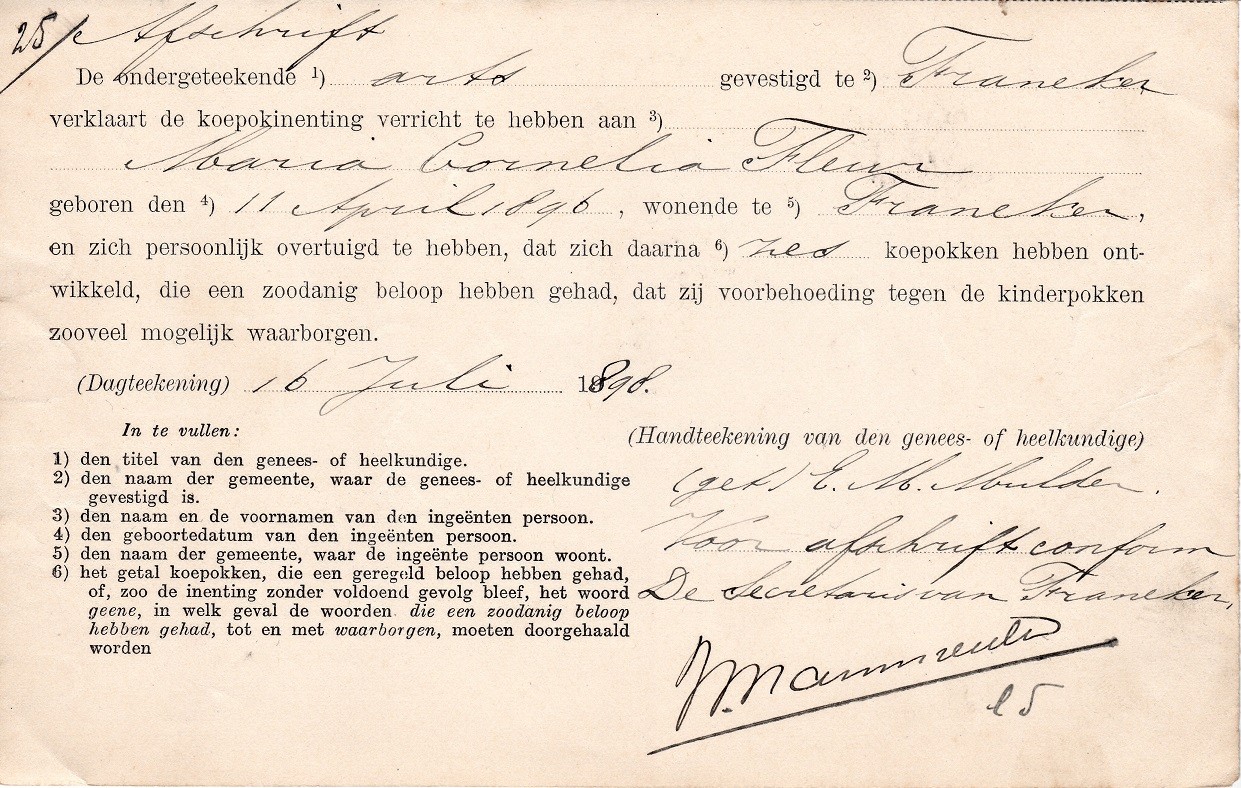 25/c Afschrift
De ondergeteekende ¹) arts gevestigd te ²) Franeker
verklaart de koepokinenting verricht te hebben aan ³)
Maria Cornelia Fleur
geboren den ⁴) 11 April 1896, wonende te ⁵) Franeker,
en zich persoonlijk overtuigd te hebben, dat zich daarna ⁶) zes koepokken hebben ont-
wikkeld, die een zoodanig beloop hebben gehad, dat zij voorbehoeding tegen de kinderpokken
zooveel mogelijk waarborgen.
(Dagteekening) 16 Juli 1898.
In te vullen:
1) den titel van den genees- of heelkundige.
2) den naam der gemeente, waar de genees- of heelkundige
gevestigd is.
3) den naam en de voornamen van den ingeënten persoon.
4) den geboortedatum van den ingeënten persoon.
5) den naam der gemeente, waar de ingeënte persoon woont.
6) het getal koepokken, die een geregeld beloop hebben gehad,
of, zoo de inenting zonder voldoend gevolg bleef, het woord
geene, in welk geval de woorden die een zoodanig beloop
hebben gehad, tot en met waarborgen, moeten doorgehaald
worden
(Handteekening van den genees- of heelkundige)
(get) E. M. Mulder.
Voor afschrift conform
De Secretaris van Franeker,